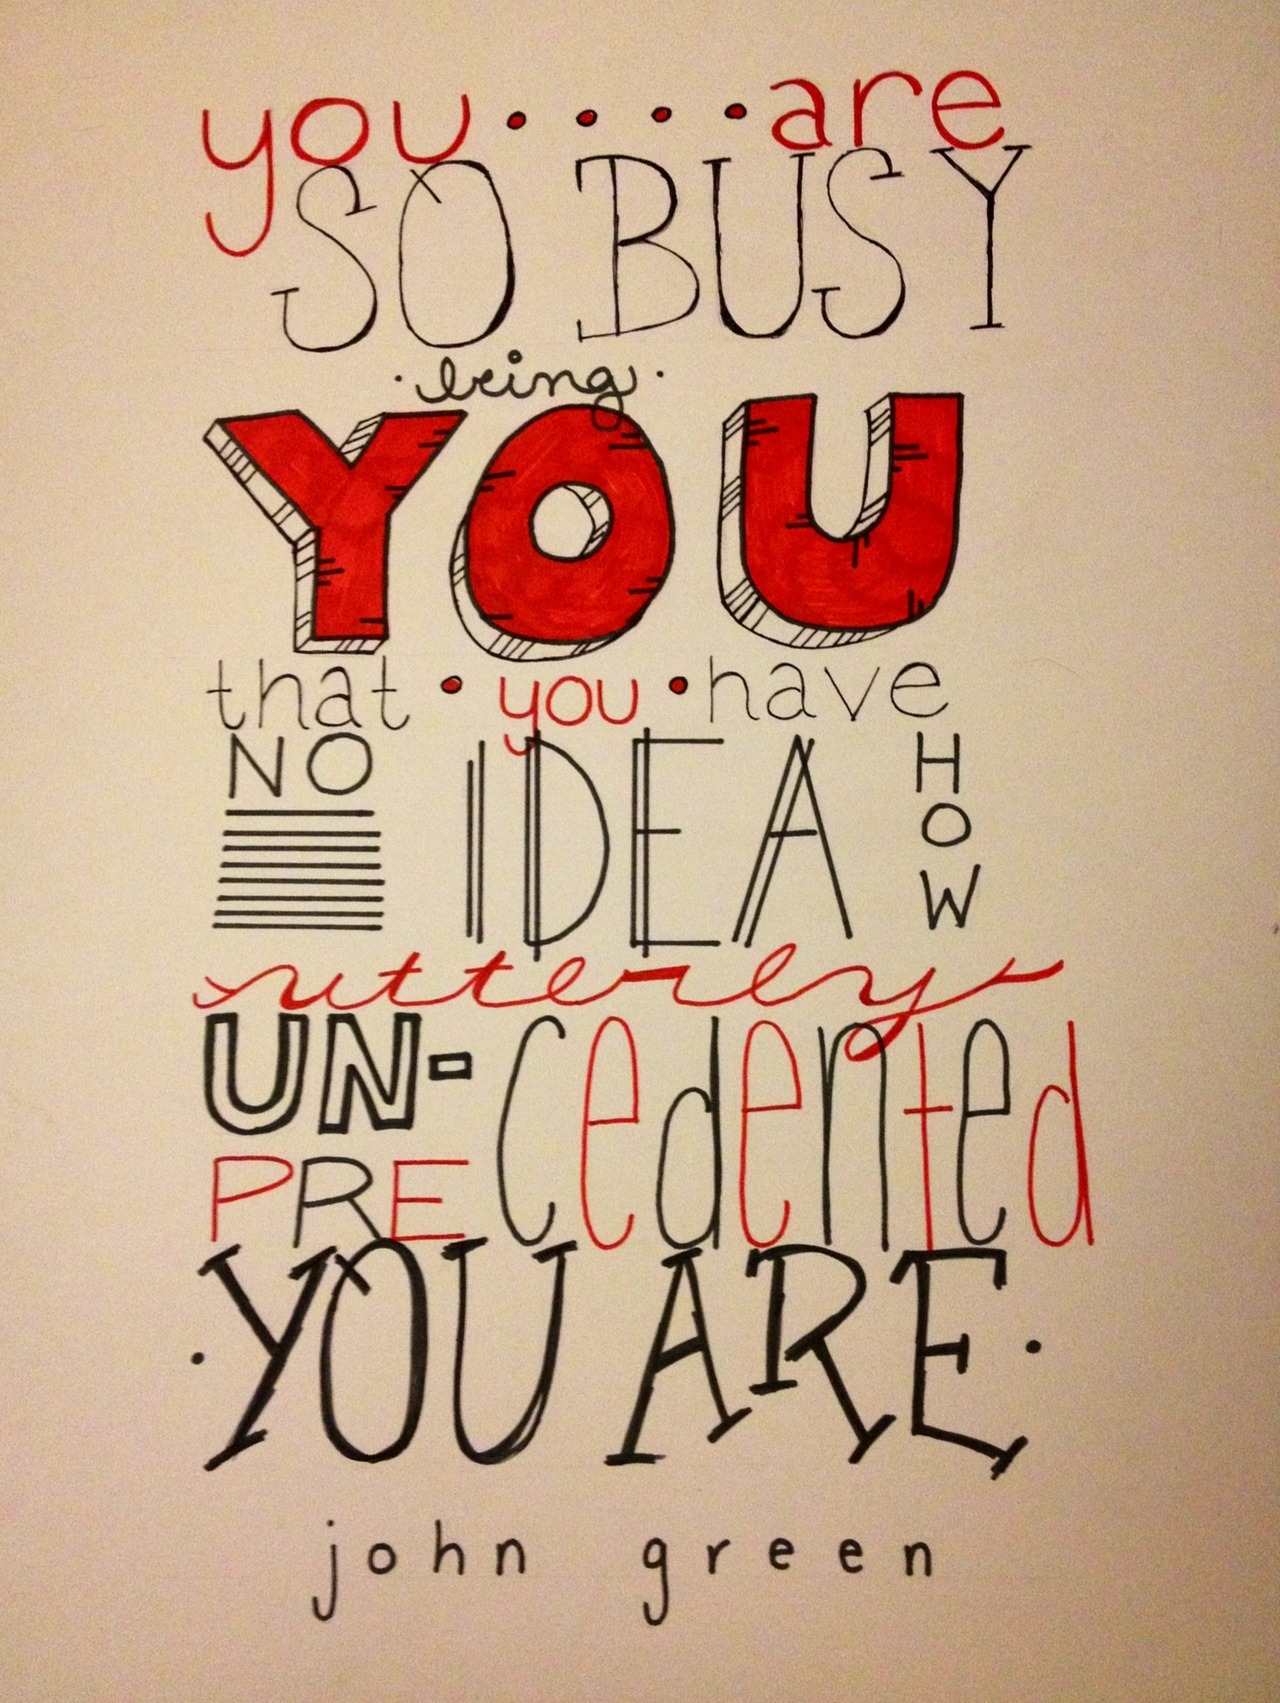 you....are
SO BUSY
·being·
YOU
that • you • have
NO IDEA HOW
utterly
UN-
PRE cedented
·YOU ARE·
john green